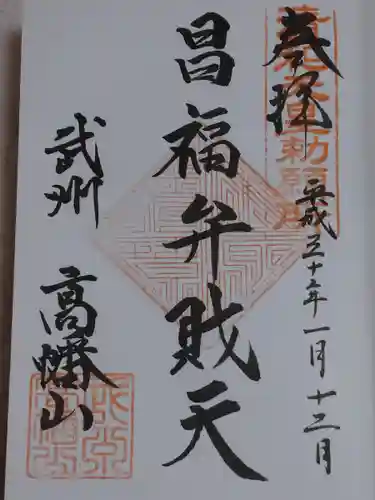 奉拝
平成三十一年一月十二月
昌福弁財天
武州
高幡山